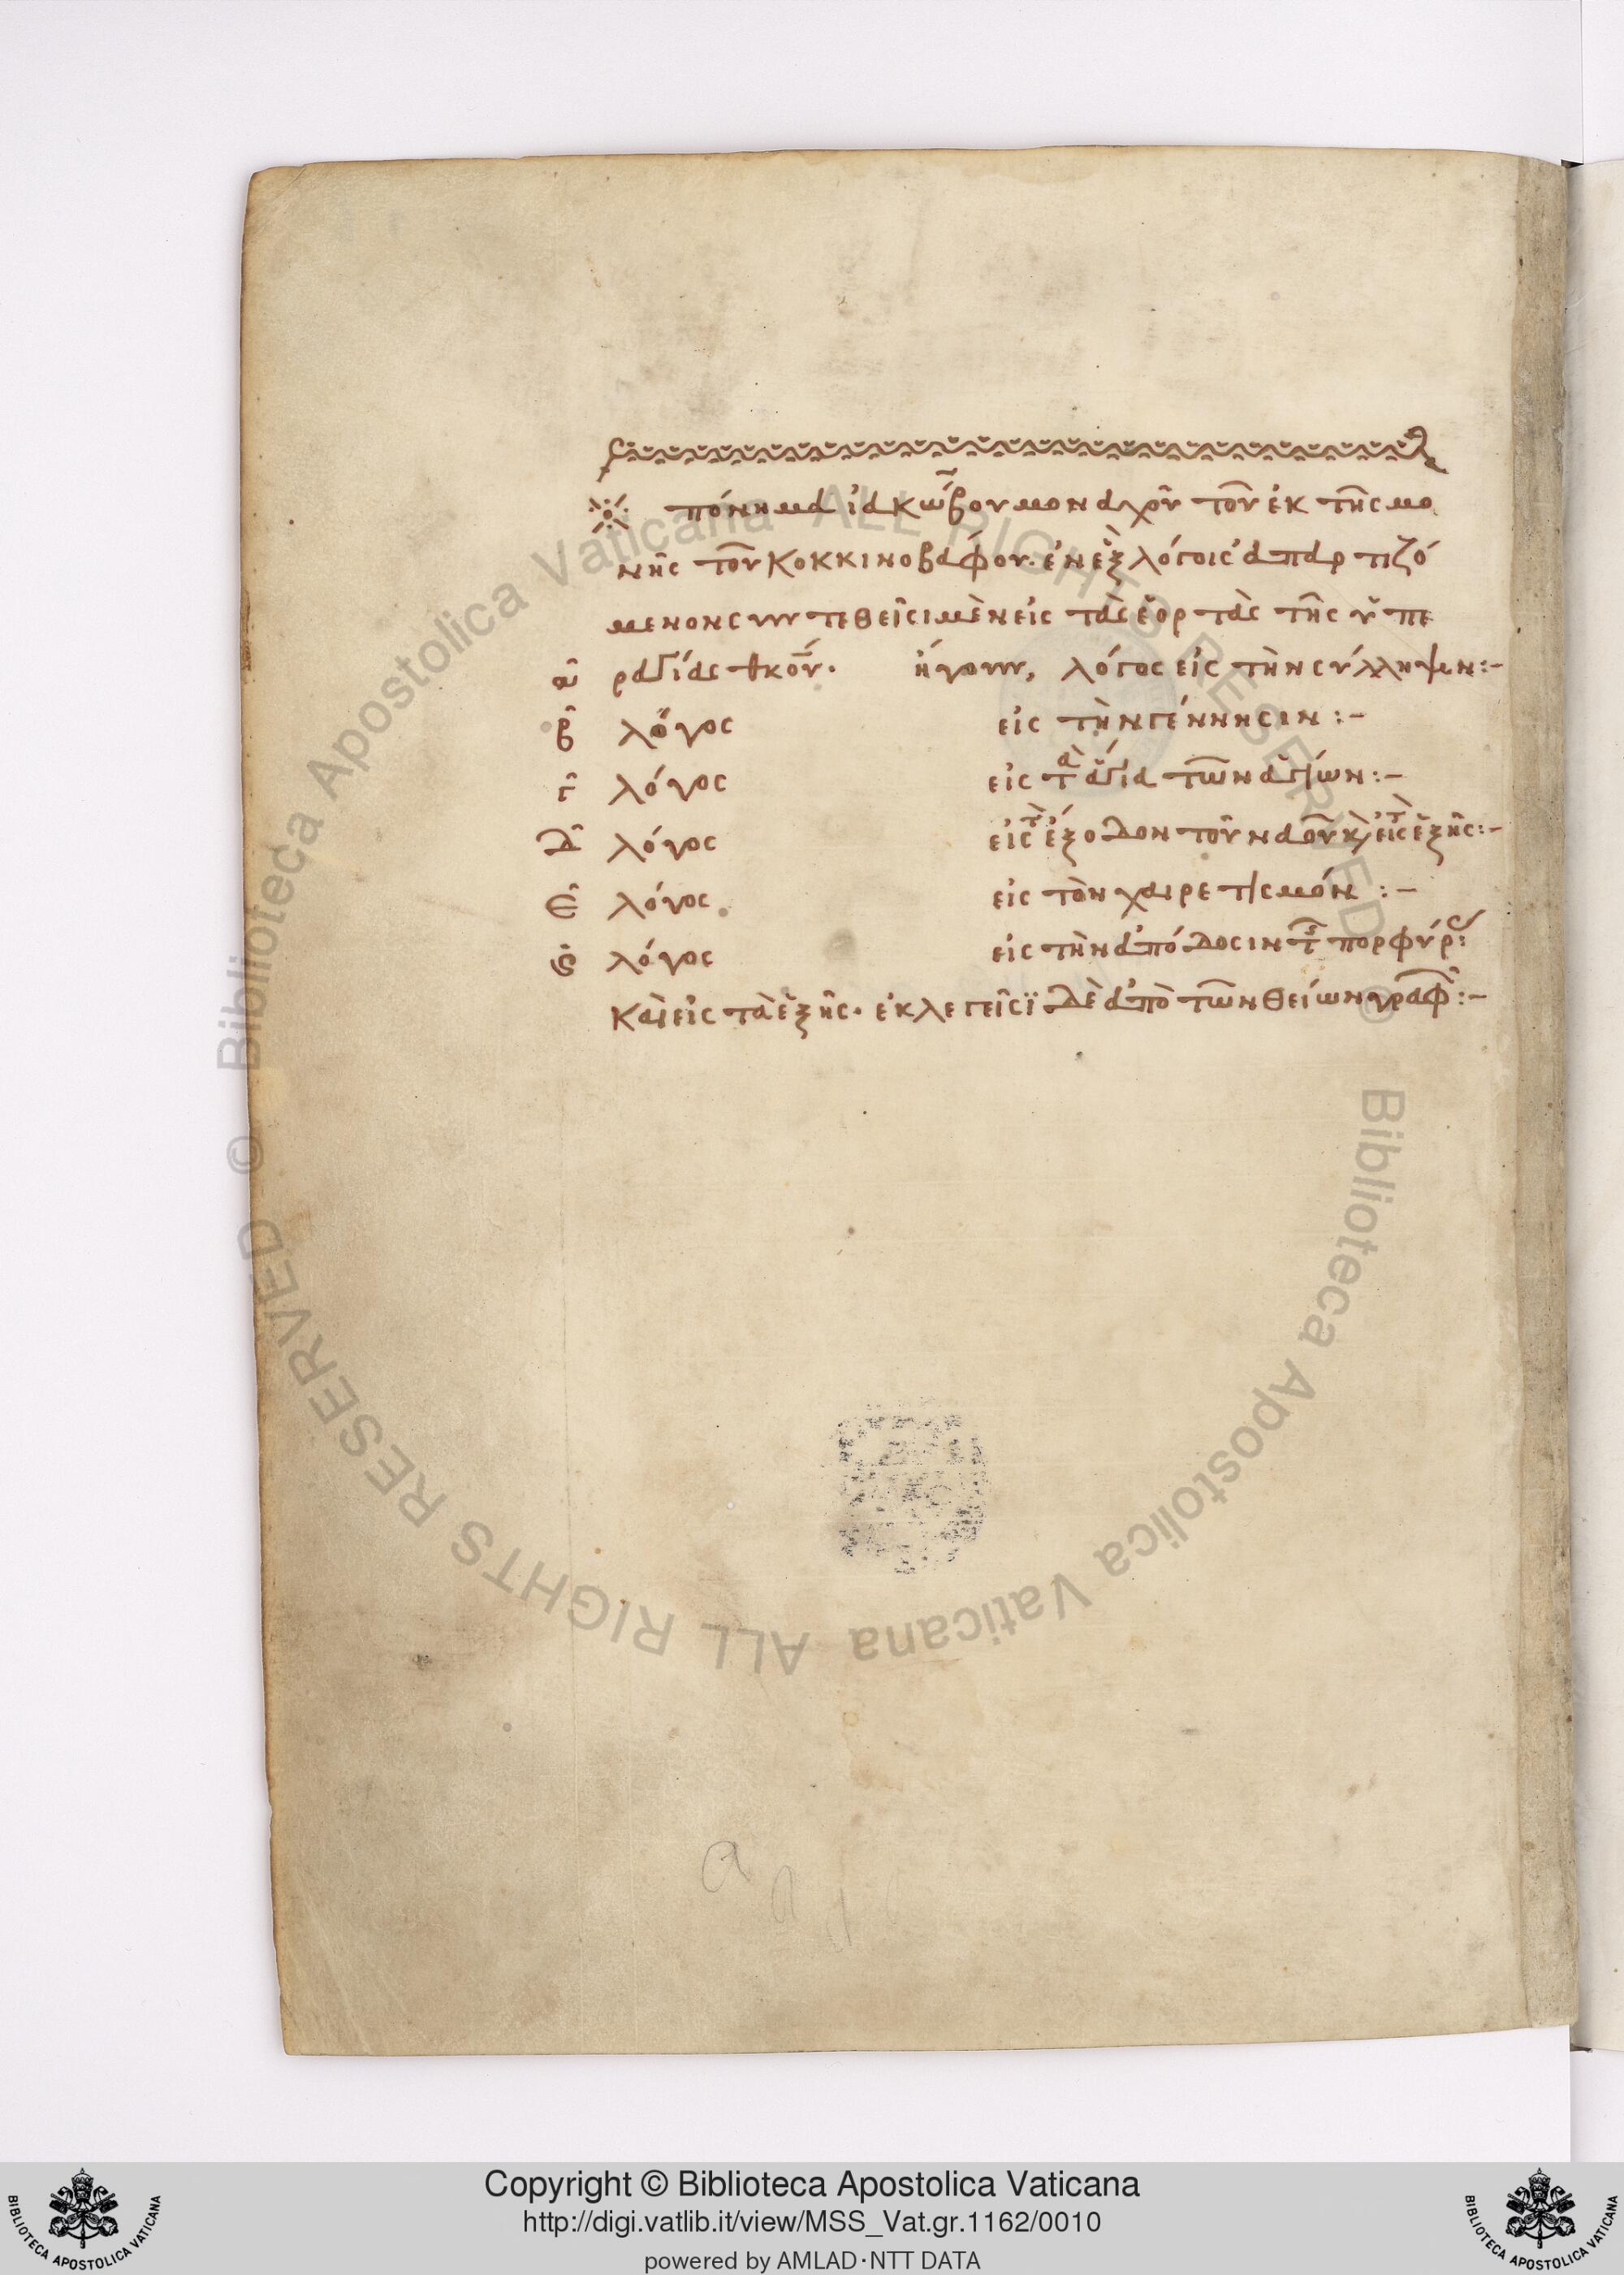 πόνημα ἰακώβου μοναχοῦ τοῦ ἐκ τῆς μο
νῆς τοῦ κοκκινοβάφου· ἐν ἓξ λόγοις ἀπαρτιζό
μενον συντεθεῖσι μὲν εἰς τὰς ἑορτὰς τῆς ὑπε
α ραγίας θκου· ἤγουν, λόγος εἰς τὴν σύλληψιν:–
β λόγος εἰς τὴν γέννησιν:–
γ λόγος εἰς τὰ ἅγια τῶν ἁγίων:–
δ λόγος εἰς τ ἔξοδον τοῦ ναοῦ κ εἰς τ ἑξῆς:–
ε λόγος εἰς τὸν χαιρετισμόν:–
ς λόγος εἰς τὴν ἀπόδοσιν τ πορφύρ:
καὶ εἰς τὰ ἑξῆς· ἐκλεγεῖσϊ δὲ ἀπὸ τῶν θείων γραφ:–
Biblioteca Apostolica Vaticana ALL RIGHTS RESERVED ©
Biblioteca Apostolica Vaticana ALL RIGHTS RESERVED ©
Copyright © Biblioteca Apostolica Vaticana
http://digi.vatlib.it/view/MSS_Vat.gr.1162/0010
powered by AMLAD·NTT DATA
BIBLIOTECA APOSTOLICA VATICANA
BIBLIOTECA APOSTOLICA VATICANA